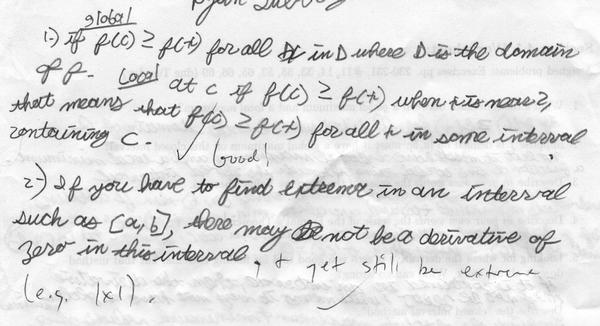 global
1.) if f(c) ≥ f(x) for all x in D where D is the domain
of f. Local at c if f(c) ≥ f(x) when x is near c,
that means that f(c) ≥ f(x) for all x in some interval
containing c. ✓ Good!
2.) If you have to find extrema in an interval
such as [a,b], there may not be a derivative of
zero in this interval, & yet still be extreme
(e.g. |x|).